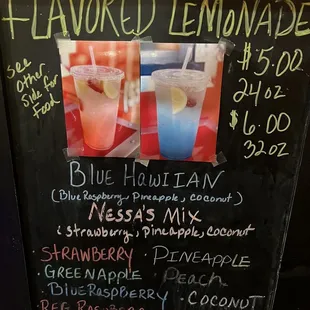 FLAVORED LEMONADE
See other side for food
$5.00
24oz
$6.00
32oz
BLUE HAWIIAN
(Blue Raspberry, Pineapple, coconut)
NESSA'S MIX
Strawberry, pineapple, coconut
STRAWBERRY · PINEAPPLE
· GREENAPPLE Peach
· BLUERASPBERRY · COCONUT
RED RASPBERRY